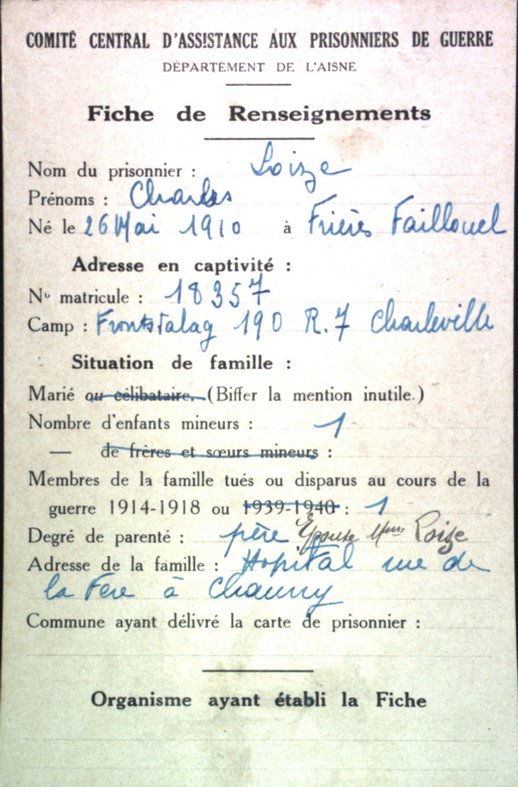 COMITÉ CENTRAL D'ASSISTANCE AUX PRISONNIERS DE GUERRE
DÉPARTEMENT DE L'AISNE
Fiche de Renseignements
Nom du prisonnier : Loize
Prénoms : Charles
Né le 26 Mai 1910 à Frières Faillouel
Adresse en captivité :
No matricule : 18357
Camp : Frontstalag 190 R.7 Charleville
Situation de famille :
Marié ou célibataire. (Biffer la mention inutile.)
Nombre d'enfants mineurs : 1
— de frères et sœurs mineurs :
Membres de la famille tués ou disparus au cours de la
guerre 1914-1918 ou 1939-1940 : 1
Degré de parenté : père Epouse Mme Loize
Adresse de la famille : Hopital rue de
la Fère à Chauny
Commune ayant délivré la carte de prisonnier :
Organisme ayant établi la Fiche